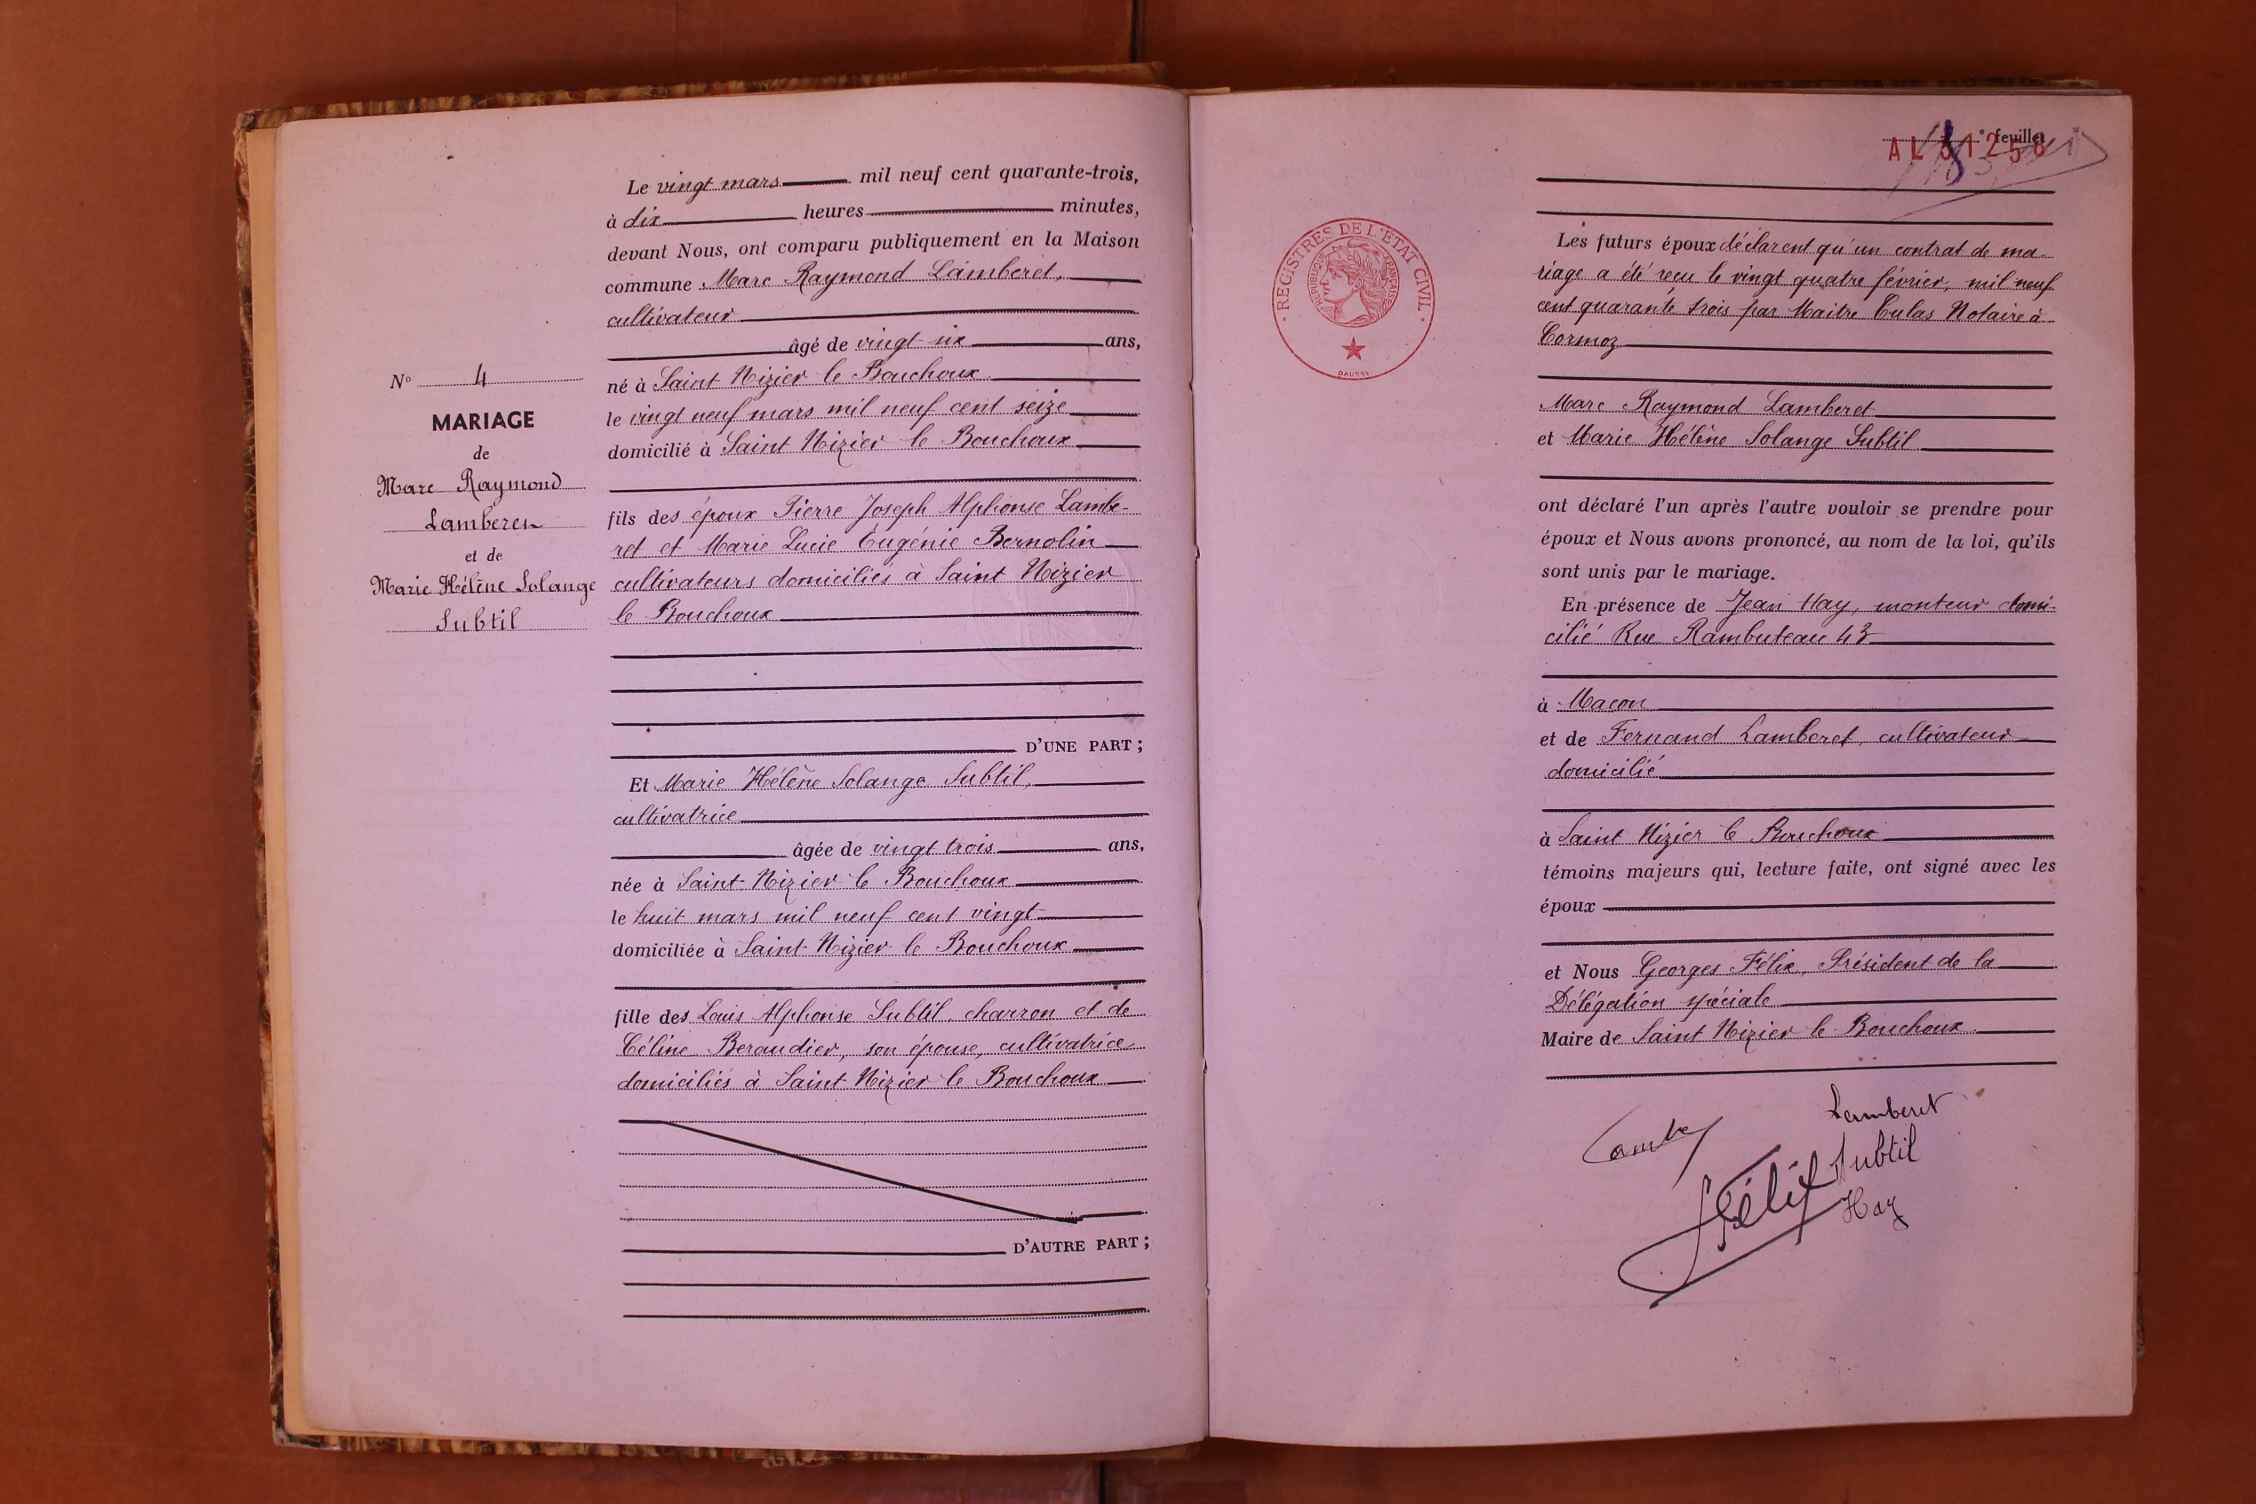 Le vingt mars mil neuf cent quarante-trois,
à dix heures minutes,
devant Nous, ont comparu publiquement en la Maison
commune Marc Raymond Lamberet,
cultivateur
âgé de vingt six ans,
né à Saint Nizier le Bouchoux
le vingt neuf mars mil neuf cent seize
domicilié à Saint Nizier le Bouchoux
fils des époux Pierre Joseph Alphonse Lambe-
ret et Marie Lucie Eugénie Bernolin
cultivateurs domiciliés à Saint Nizier
le Bouchoux
D'UNE PART ;
Et Marie Hélène Solange Subtil,
cultivatrice
âgée de vingt trois ans,
née à Saint-Nizier le Bouchoux
le huit mars mil neuf cent vingt
domiciliée à Saint-Nizier le Bouchoux
fille des Louis Alphonse Subtil, charron et de
Céline Beraudier, son épouse, cultivatrice
domiciliés à Saint-Nizier le Bouchoux
D'AUTRE PART ;
N° 4
MARIAGE
de
Marc Raymond
Lamberet
et de
Marie Hélène Solange
Subtil
e feuillet
REGISTRES DE L'ÉTAT CIVIL
RÉPUBLIQUE FRANÇAISE
Les futurs époux déclarent qu'un contrat de ma-
riage a été reçu le vingt quatre février, mil neuf
cent quarante trois par Maitre Culas Notaire à
Cormoz
Marc Raymond Lamberet
et Marie Hélène Solange Subtil
ont déclaré l'un après l'autre vouloir se prendre pour
époux et Nous avons prononcé, au nom de la loi, qu'ils
sont unis par le mariage.
En présence de Jean Hay, monteur domi-
cilié Rue Rambuteau 43
à Macon
et de Fernand Lamberet, cultivateur
domicilié
à Saint Nizier le Bouchoux
témoins majeurs qui, lecture faite, ont signé avec les
époux
et Nous Georges Félix, Président de la
Délégation spéciale
Maire de Saint Nizier le Bouchoux
Lamberet
Subtil
Félix
Hay